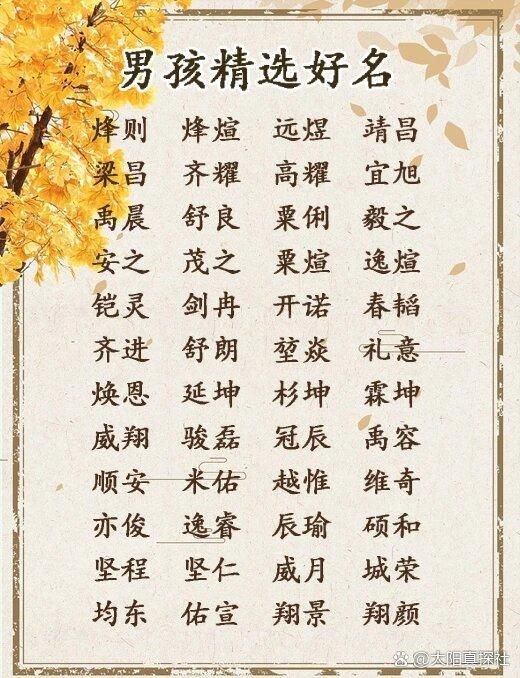 男孩精选好名
烽则 烽煊 远煜 靖昌
梁昌 齐耀 高耀 宜旭
禹晨 舒良 粟俐 毅之
安之 茂之 粟煊 逸煊
铠灵 剑冉 开诺 春韬
齐进 舒朗 堃焱 礼意
焕恩 延坤 杉坤 霖坤
威翔 骏磊 冠辰 禹容
顺安 米佑 越惟 维奇
亦俊 逸睿 辰瑜 硕和
坚程 坚仁 威月 城荣
均东 佑宣 翔景 翔颜
@太阳真探社